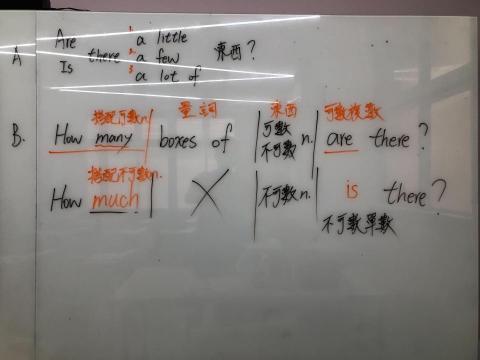 Are 1. a little
A Is there 2. a few 東西?
3. a lot of
搭配可數n. 量詞 東西 可數複數
B. How many boxes of 可數 不可數 n. are there?
搭配不可數n.
How much X 不可數n. is there?
不可數單數